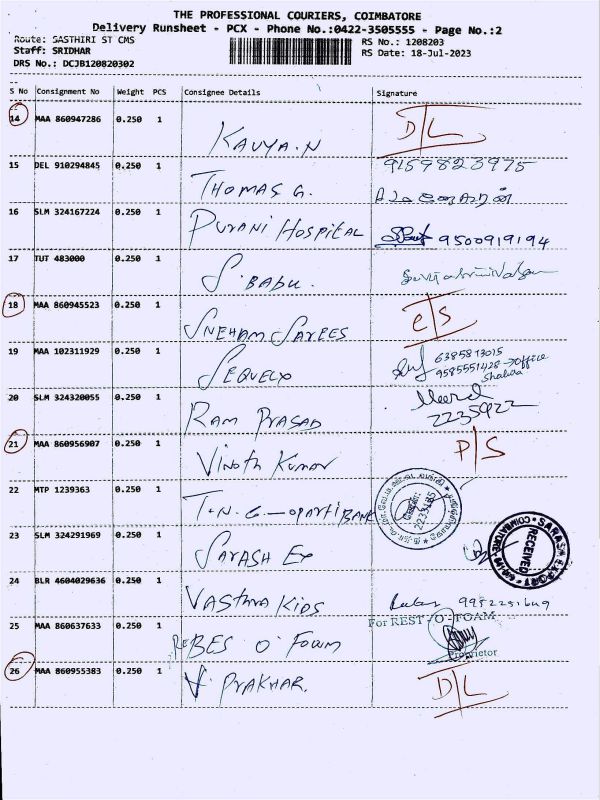 THE PROFESSIONAL COURIERS, COIMBATORE
Delivery Runsheet - PCX - Phone No.:0422-3505555 - Page No.:2
Route: SASTHIRI ST CMS RS No.: 1208203
Staff: SRIDHAR RS Date: 18-Jul-2023
DRS No.: DCJB120820302
S No Consignment No Weight PCS Consignee Details Signature
14 MAA 860947286 0.250 1 KAVYA.N D/L
15 DEL 910294845 0.250 1 THOMAS G. 9159823975
16 SLM 324167224 0.250 1 PURANI HOSPITAL 9500919194
17 TUT 483000 0.250 1 S. BABU.
18 MAA 860945523 0.250 1 SNEHAM SAREES e/S
19 MAA 102311929 0.250 1 SEQUELX 6385813015
9585551428 → office
20 SLM 324320055 0.250 1 RAM PRASAD 2235922
21 MAA 860956907 0.250 1 VINOTH KUMAR P/S
22 MTP 1239363 0.250 1 T.N.G.
23 SLM 324291969 0.250 1 SARASH EX SARASH EXPORT COIMBATORE RECEIVED
24 BLR 4604029636 0.250 1 VASTHRA KIDS
25 MAA 860637633 0.250 1 For REST-'O'-FOAM
Proprietor
26 MAA 860955383 0.250 1 V. PRAKHAR. D/L